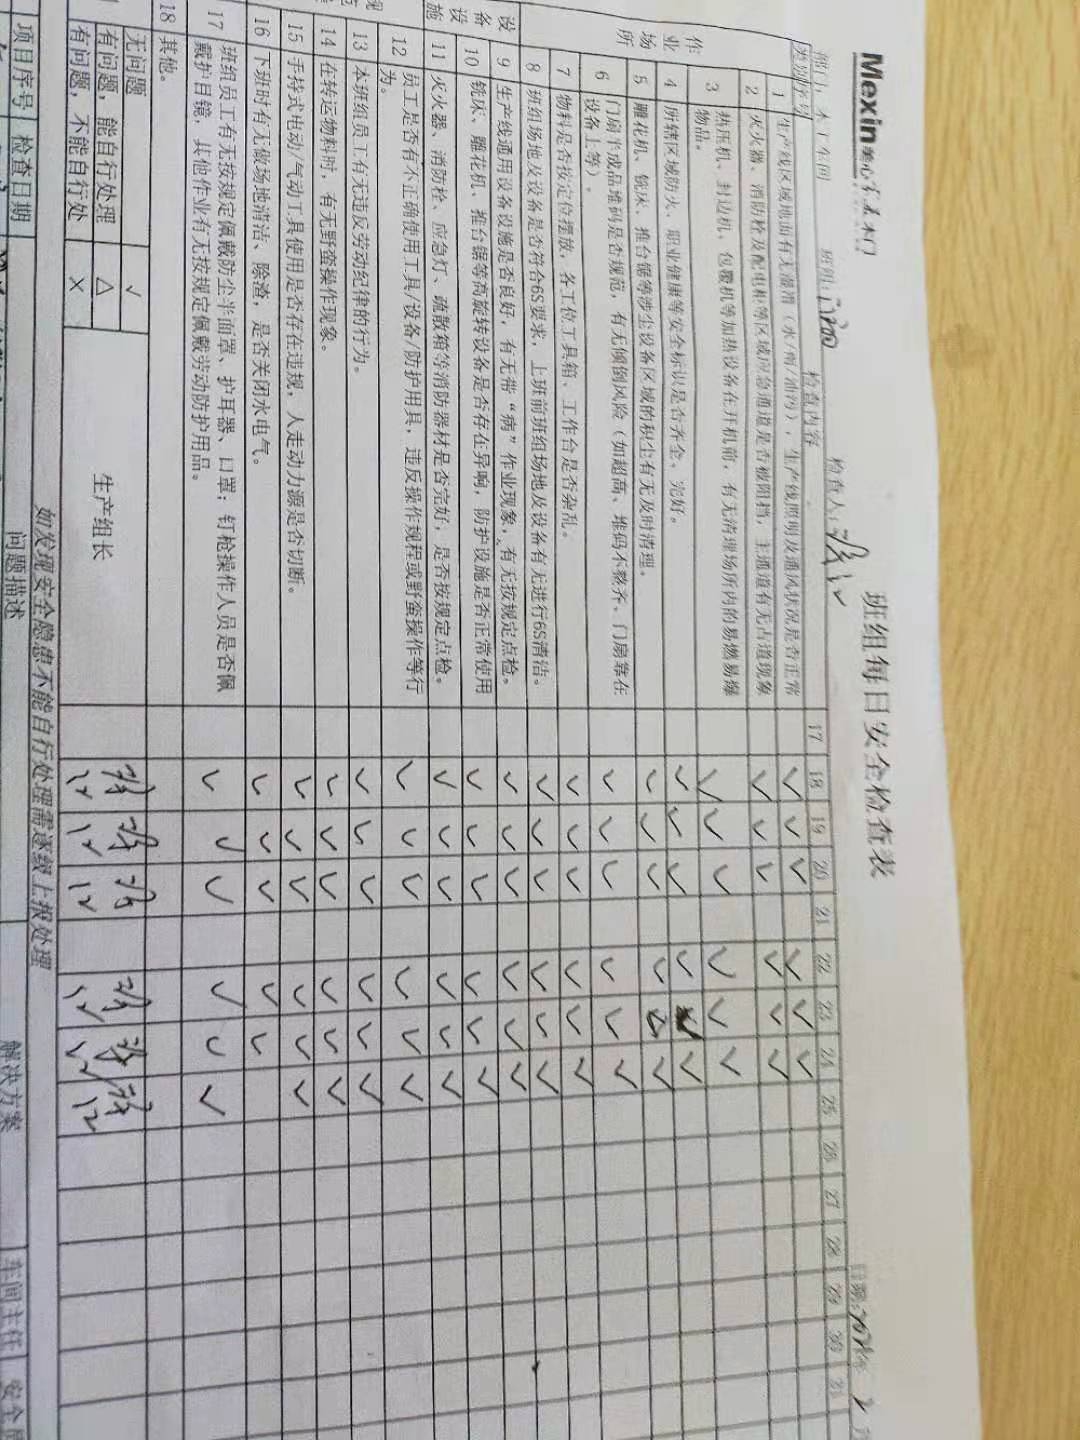 Mexin 美心 木门
班组每日安全检查表
部门：木工车间 班组： 检查人： 日期： 年 2 月
类别 序号 检查内容 17 18 19 20 21 22 23 24 25 26 27 28 29 30 31
作业场所
1 生产线区域地面有无湿滑（水/雨/油污），生产线照明及通风状况是否正常 ✓ ✓ ✓ ✓ ✓ ✓
2 灭火器、消防栓及配电柜等区域应急通道是否被阻挡，主通道有无占道现象 ✓ ✓ ✓ ✓ ✓ ✓
3 热压机、封边机、包覆机等加热设备在开机前，有无清理场所内的易燃易爆物品。 ✓ ✓ ✓ ✓ ✓ ✓
4 所辖区域防火、职业健康等安全标识是否齐全、完好。 ✓ ✓ ✓ ✓ ✓ ✓
5 雕花机、铣床、推台锯等涉尘设备区域的积尘有无及时清理。 ✓ ✓ ✓ ✓ ✓ ✓
6 门扇半成品堆码是否规范，有无倾倒风险（如超高、堆码不整齐、门扇靠在设备上等）。 ✓ ✓ ✓ ✓ ✓ ✓
7 物料是否按定位摆放，各工位工具箱、工作台是否杂乱。 ✓ ✓ ✓ ✓ ✓ ✓
8 班组场地及设备是否符合6S要求，上班前班组场地及设备有无进行6S清洁。 ✓ ✓ ✓ ✓ ✓ ✓
设备设施
9 生产线通用设备设施是否良好，有无带“病”作业现象，有无按规定点检。 ✓ ✓ ✓ ✓ ✓ ✓
10 铣床、雕花机、推台锯等高旋转设备是否存在异响，防护设施是否正常使用 ✓ ✓ ✓ ✓ ✓ ✓
11 灭火器、消防栓、应急灯、疏散箱等消防器材是否完好，是否按规定点检。 ✓ ✓ ✓ ✓ ✓ ✓
12 员工是否有不正确使用工具/设备/防护用具，违反操作规程或野蛮操作等行为。 ✓ ✓ ✓ ✓ ✓ ✓
13 本班组员工有无违反劳动纪律的行为。 ✓ ✓ ✓ ✓ ✓ ✓
14 在转运物料时，有无野蛮操作现象。 ✓ ✓ ✓ ✓ ✓ ✓
15 手持式电动/气动工具使用是否存在违规，人走动力源是否切断。 ✓ ✓ ✓ ✓ ✓ ✓
16 下班时有无做场地清洁、除渣，是否关闭水电气。 ✓ ✓ ✓ ✓ ✓
17 班组员工有无按规定佩戴防尘半面罩、护耳器、口罩；钉枪操作人员是否佩戴护目镜，其他作业有无按规定佩戴劳动防护用品。 ✓ ✓ ✓ ✓ ✓ ✓
18 其他。
无问题 ✓
有问题，能自行处理 △
有问题，不能自行处 ×
生产组长
如发现安全隐患不能自行处理需逐级上报处理
项目序号 检查日期 问题描述 解决方案 车间主任 安全员